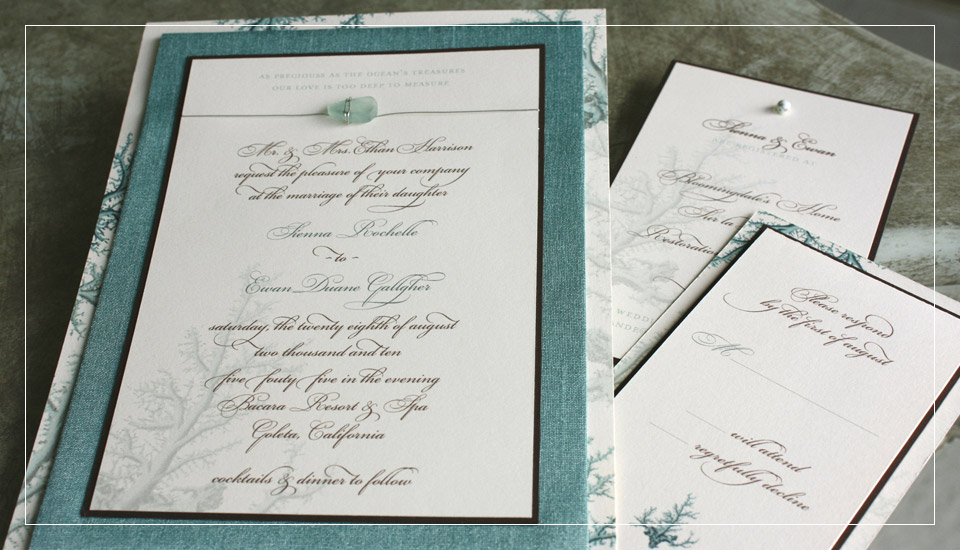 AS PRECIOUS AS THE OCEAN'S TREASURES
OUR LOVE IS TOO DEEP TO MEASURE
Mr. & Mrs. Ethan Harrison
request the pleasure of your company
at the marriage of their daughter
Sienna Rochelle
- to -
Ewan Duane Gallgher
saturday, the twenty eighth of august
two thousand and ten
five fouty five in the evening
Bacara Resort & Spa
Goleta, California
cocktails & dinner to follow
Sienna & Ewan
REGISTERED AT
Bloomingdale's Home
Sur la
Restoration
Please respond
by the first of august
M
will attend
regretfully decline